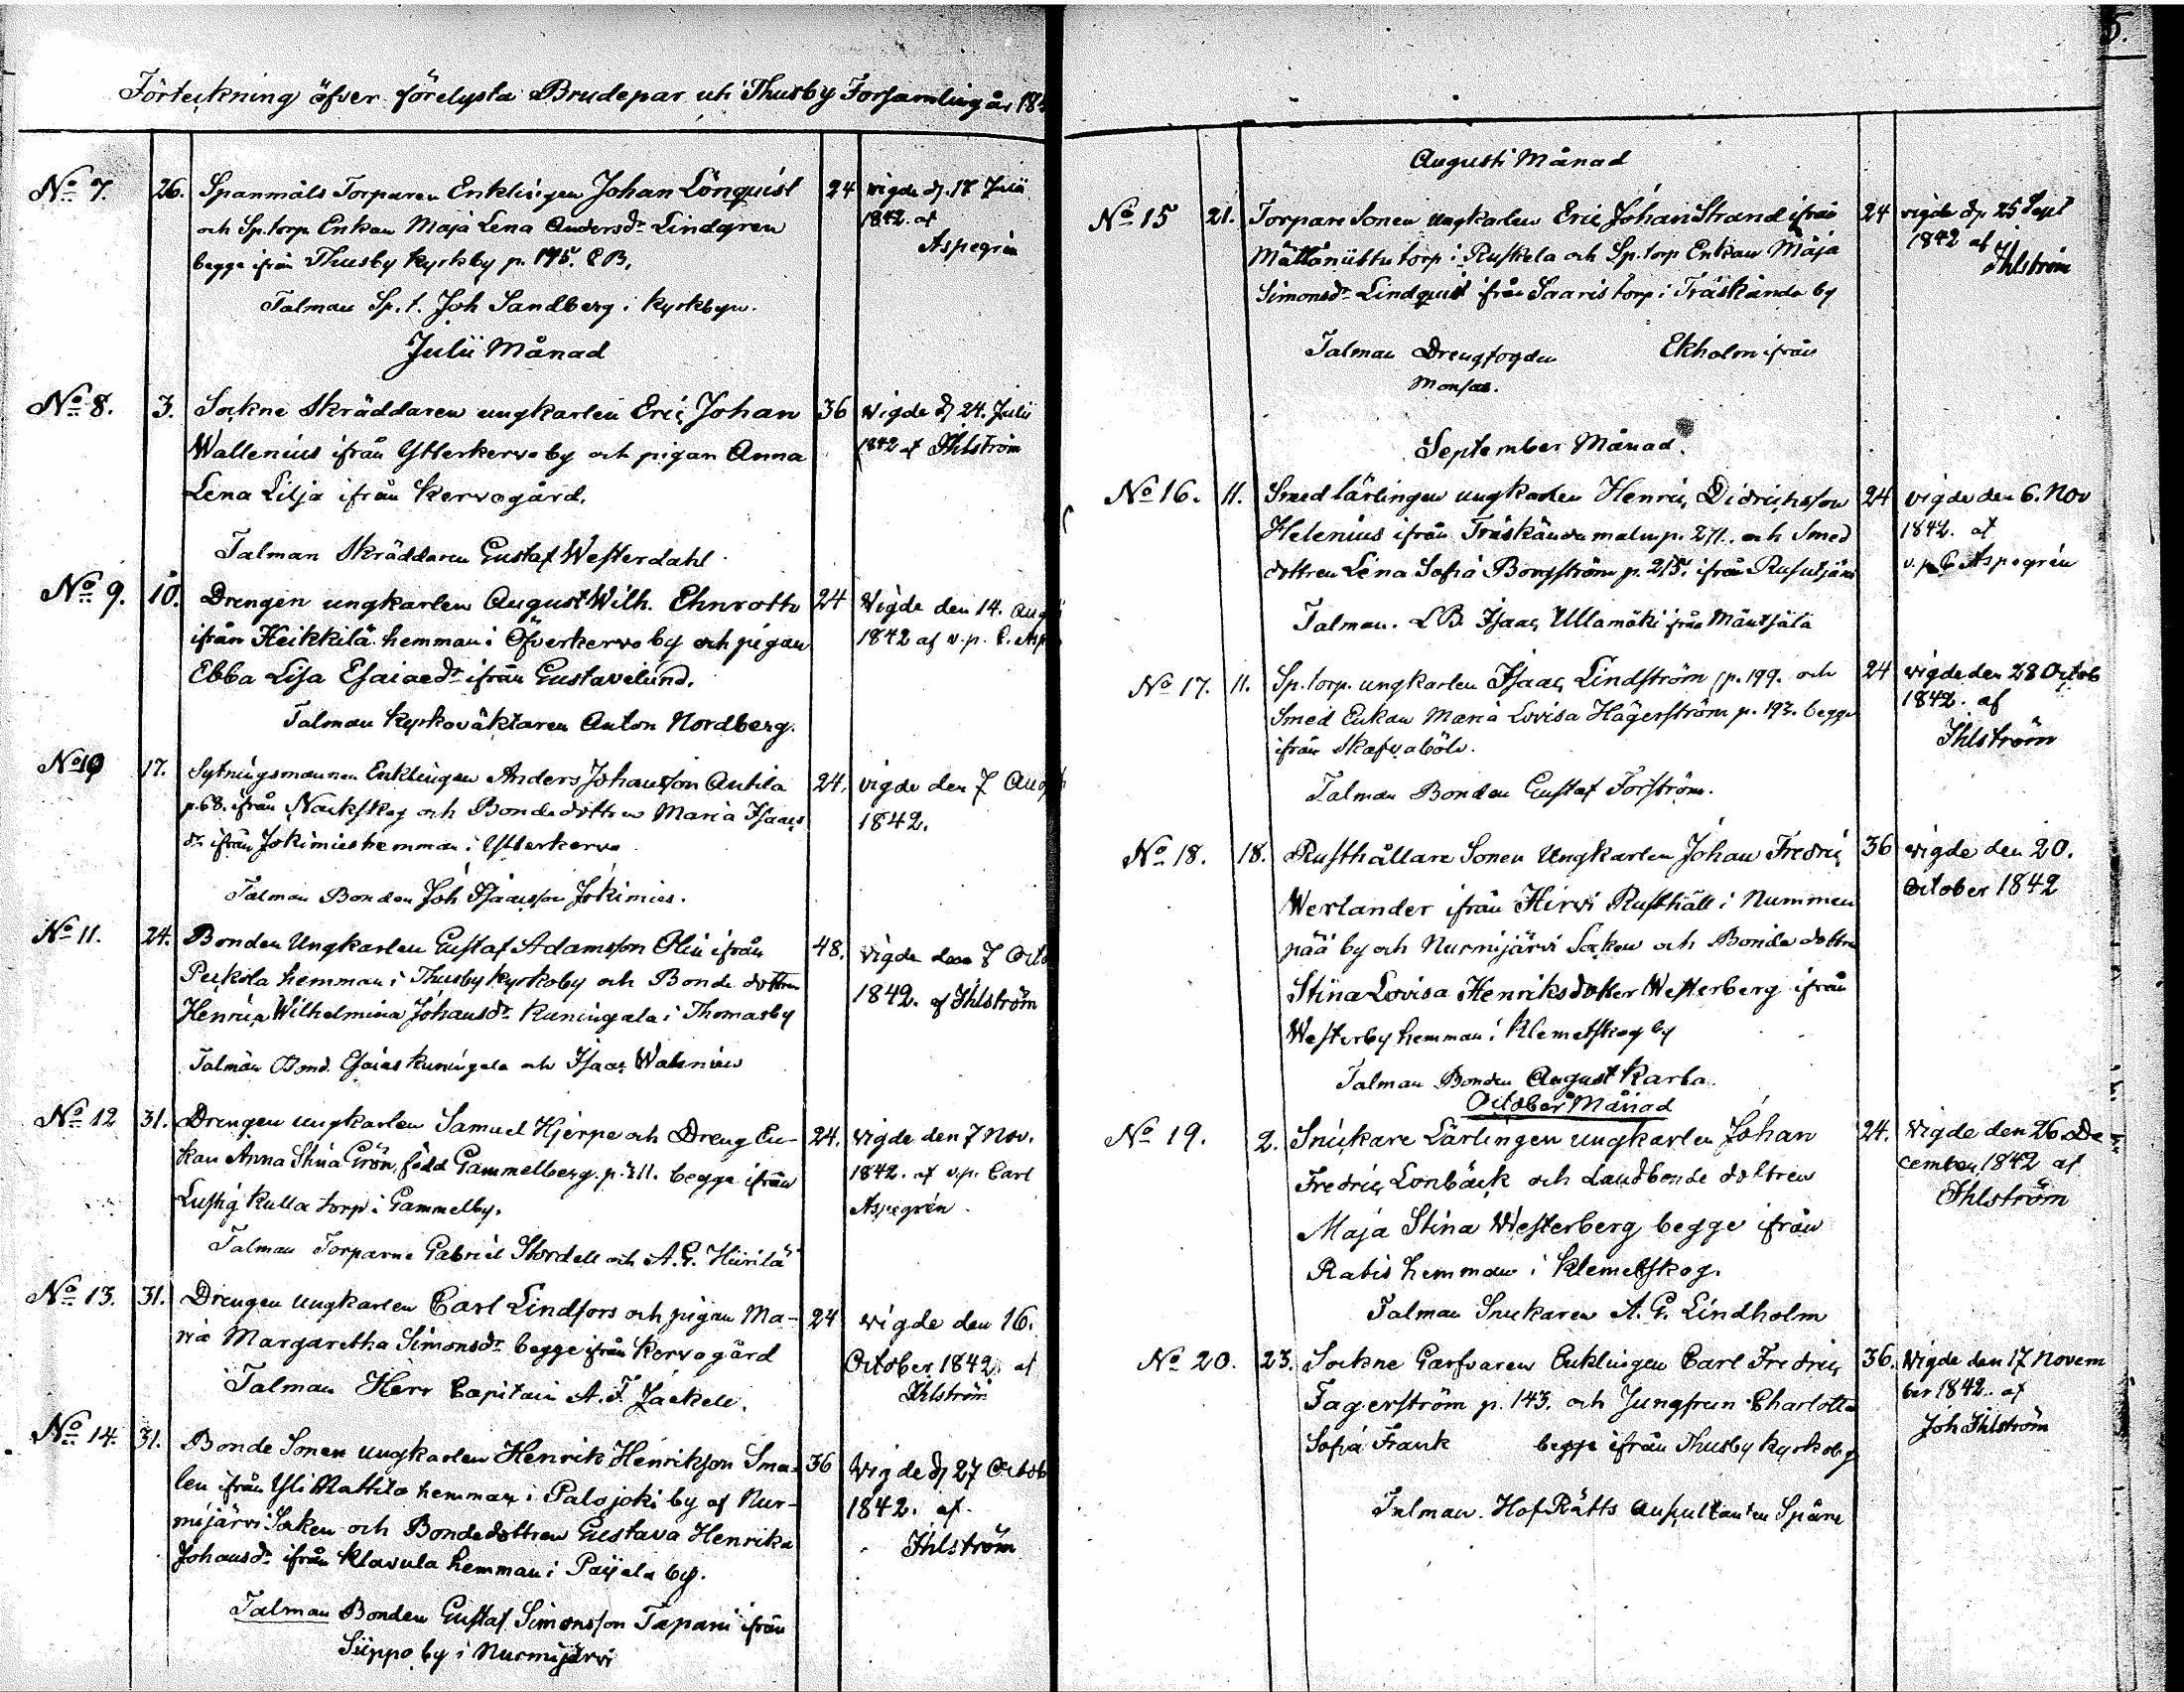 Förteckning öfver förelysta Brudepar uti Thusby Forsamling år 18
No 7. 26. Spanmåls Torparen Enklingen Johan Lönquist 24 vigde d. 17 Julii
och Sp. torp. Enkan Maja Lena Andersdr Lindgren 1842. af
begge ifrån Thusby Kyrkby p. 195. C.B. Aspegrén
Talman Sp. t. Joh Sandberg i Kyrkbyn.
Julii Månad
No 8. 3. Sockne Skräddaren ungkarlen Eric Johan 36 Vigde d. 24. Julii
Wallenius ifrån Ytterkervo by och pigan Anna 1842 af Ihlström
Lena Lilja ifrån Kervogård.
Talman Skräddaren Gustaf Westerdahl
No 9. 10. Drengen ungkarlen August Wilh. Ehnroth 24 Vigde den 14. Aug
ifrån Heikkilä hemman i Öfverkervo by och pigan 1842 af v. p. C. Asp
Ebba Lisa Esaiaedr ifrån Gustavelund.
Talman Kyrkoväktaren Anton Nordberg.
No 10 17. Sytningsmannen Enklingen Anders Johansson Antila 24. vigde den 7 Aug
p. 68. ifrån Nackskog och Bondedottren Maria Isaacs 1842.
dr ifrån Jokimies hemman i Ytterkervo
Talman Bonden Joh Isaacsson Jokimies.
No 11. 24. Bonden Ungkarlen Gustaf Adamsson Olin ifrån 48. Vigde den 7 Octo
Peckola hemman i Thusby Kyrkoby och Bonde dottren
Henrica Wilhelmina Johansdr Kuningala i Thomasby 1842. af Ihlström
Talmän Bond. Esaias Kuningala och Isaac Walenius
No 12 31. Drengen ungkarlen Samuel Hjerpe och Dreng En- 24. vigde den 7 Nov.
kan Anna Stina Grön, född Gammelberg. p. 311. begge ifrån 1842. af v.p. Carl
Lustig Kulla torp i Gammelby. Aspegrén.
Talman Torparne Gabriel Stordell och A. G. Hiirilä
No 13. 31. Drengen ungkarlen Carl Lindfors och pigan Ma- 24 vigde den 16.
ria Margaretha Simonsdr begge ifrån Kervogård October 1842. af
Talman Herr Capitain A. F. Jackell. Ihlström
No 14. 31. Bonde Sonen ungkarlen Henrik Henriksson Sma- 36 Vigde d. 27 Octob
len ifrån Yli Mattila hemman i Palojoki by af Nur- 1842. af
mijärvi Socken och Bondedottren Gustava Henrika Ihlström
Johansdr ifrån Klavula hemman i Paijala by.
Talman Bonden Gustaf Simonsson Tapani ifrån
Siippo by i Nurmijärvi
5.
Augusti Månad
No 15 21. Torpare Sonen ungkarlen Eric Johan Strand ifrån 24 vigde d. 25 Sept
Mättäniittu torp i Ruskela och Sp. torp Enkan Maja 1842 af
Simonsdr Lindquist ifrån Saaris torp i Träskända by Ihlström
Talman Drengfogden Ekholm ifrån
Monsas.
September Månad.
No 16. 11. Smed lärlingen ungkarlen Henric Didrichsson 24 vigde den 6. Nov
Helenius ifrån Träskända malm p. 271. och Smed 1842. af
dottren Lena Sofia Bongström p. 215. ifrån Rusutjärvi v. p. C Aspegrén
Talman. L.B. Isaac Ullamäki ifrån Mäntsälä
No 17. 11. Sp. torp. ungkarlen Isaac Lindström p. 199. och 24 vigde den 28 Octob
Smed Enkan Maria Lovisa Hägerström p. 193. begge 1842. af
ifrån Skafvaböle. Ihlström
Talman Bonden Gustaf Forström.
No 18. 18. Rusthållare Sonen Ungkarlen Johan Fredric 36 vigde den 20.
Werlander ifrån Hirvi Rusthåll i Nummen October 1842
pää by och Nurmijärvi Socken och Bonde dottren
Stina Lovisa Henriksdotter Westerberg ifrån
Westerby hemman i Klemetskog by
Talman Bonden August Karla.
October Månad
No 19. 2. Snickare Lärlingen ungkarlen Johan 24. Vigde den 26 De
Fredric Lonbäck och Landbonde dottren cember 1842 af
Maja Stina Westerberg begge ifrån Ihlström
Rabis hemman i Klemetskog.
Talman Snickaren A. G. Lindholm
No 20. 23. Sockne Garfvaren Enklingen Carl Fredric 36. Vigde den 17 Novem
Fagerström p. 143. och Jungfrun Charlotta ber 1842. af
Sofia Frank begge ifrån Thusby Kyrkoby Joh Ihlström
Talman. Hof Rätts Auscultanten Spåre